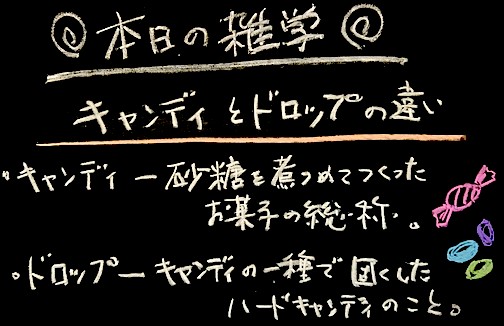 本日の雑学
キャンディとドロップの違い
・キャンディー砂糖を煮つめてつくった
お菓子の総称。
・ドロップーキャンディの一種で固くした
ハードキャンディのこと。